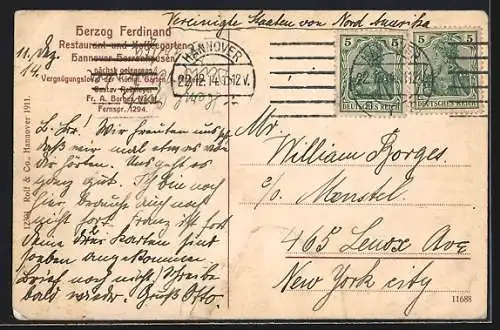 Vereinigte Staaten von Nord Amerika
Herzog Ferdinand
Restaurant und Kaffeegarten
Hannover Herrenhausen
nächst gelegenes
Vergnügungslokal der Königl. Gärten.
Fr. A. Borges
Fernspr. 1294.
11. Dez.
14.
HANNOVER
22.12.14.11-12 V.
5 5
DEUTSCHES REICH
5 5
DEUTSCHES REICH
L. Br.! Wir freuten uns,
daß wir mal etwas von
dir hörten. Uns geht es
ganz gut. Ich bin noch
hier, brauche auch noch
nicht fort. Franz ist fort
Deine Karten sind
soeben angekommen
Brief noch nicht, schreibe
bald wieder. Gruß Otto.
Mr.
William Borges.
c/o. Menstel.
465 Lenox Ave
New York City
17291 Rolf & Co., Hannover 1911.
11688